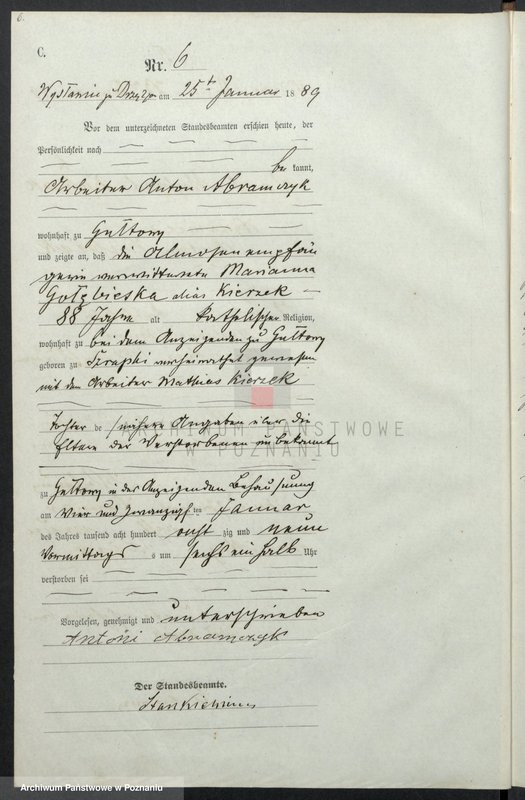 6.
C.
Nr. 6
am 25t Januar 1889
Vor dem unterzeichneten Standesbeamten erschien heute, der
Persönlichkeit nach
be kannt,
Arbeiter Anton Abramczyk
wohnhaft zu Guttowy
und zeigte an, daß die Almosenempfän
gerin verwittwete Marianna
Gołębieska alias Kierzek
88 Jahre alt katholischer Religion,
wohnhaft zu bei dem Anzeigenden zu Guttowy
geboren zu verheirathet gewesen
mit dem Arbeiter Mathias Kierzek
Tochter de nähere Angaben über die
Eltern der Verstorbenen unbekannt
ARCHIWUM PAŃSTWOWE
W POZNANIU
zu Guttowy in des Anzeigenden Behausung
am Vier und zwanzigsten Januar
des Jahres tausend acht hundert acht zig und neun
Vormittags um sechs ein halb Uhr
verstorben sei
Vorgelesen, genehmigt und unterschrieben
Antoni Abramczyk
Der Standesbeamte.
Archiwum Państwowe w Poznaniu